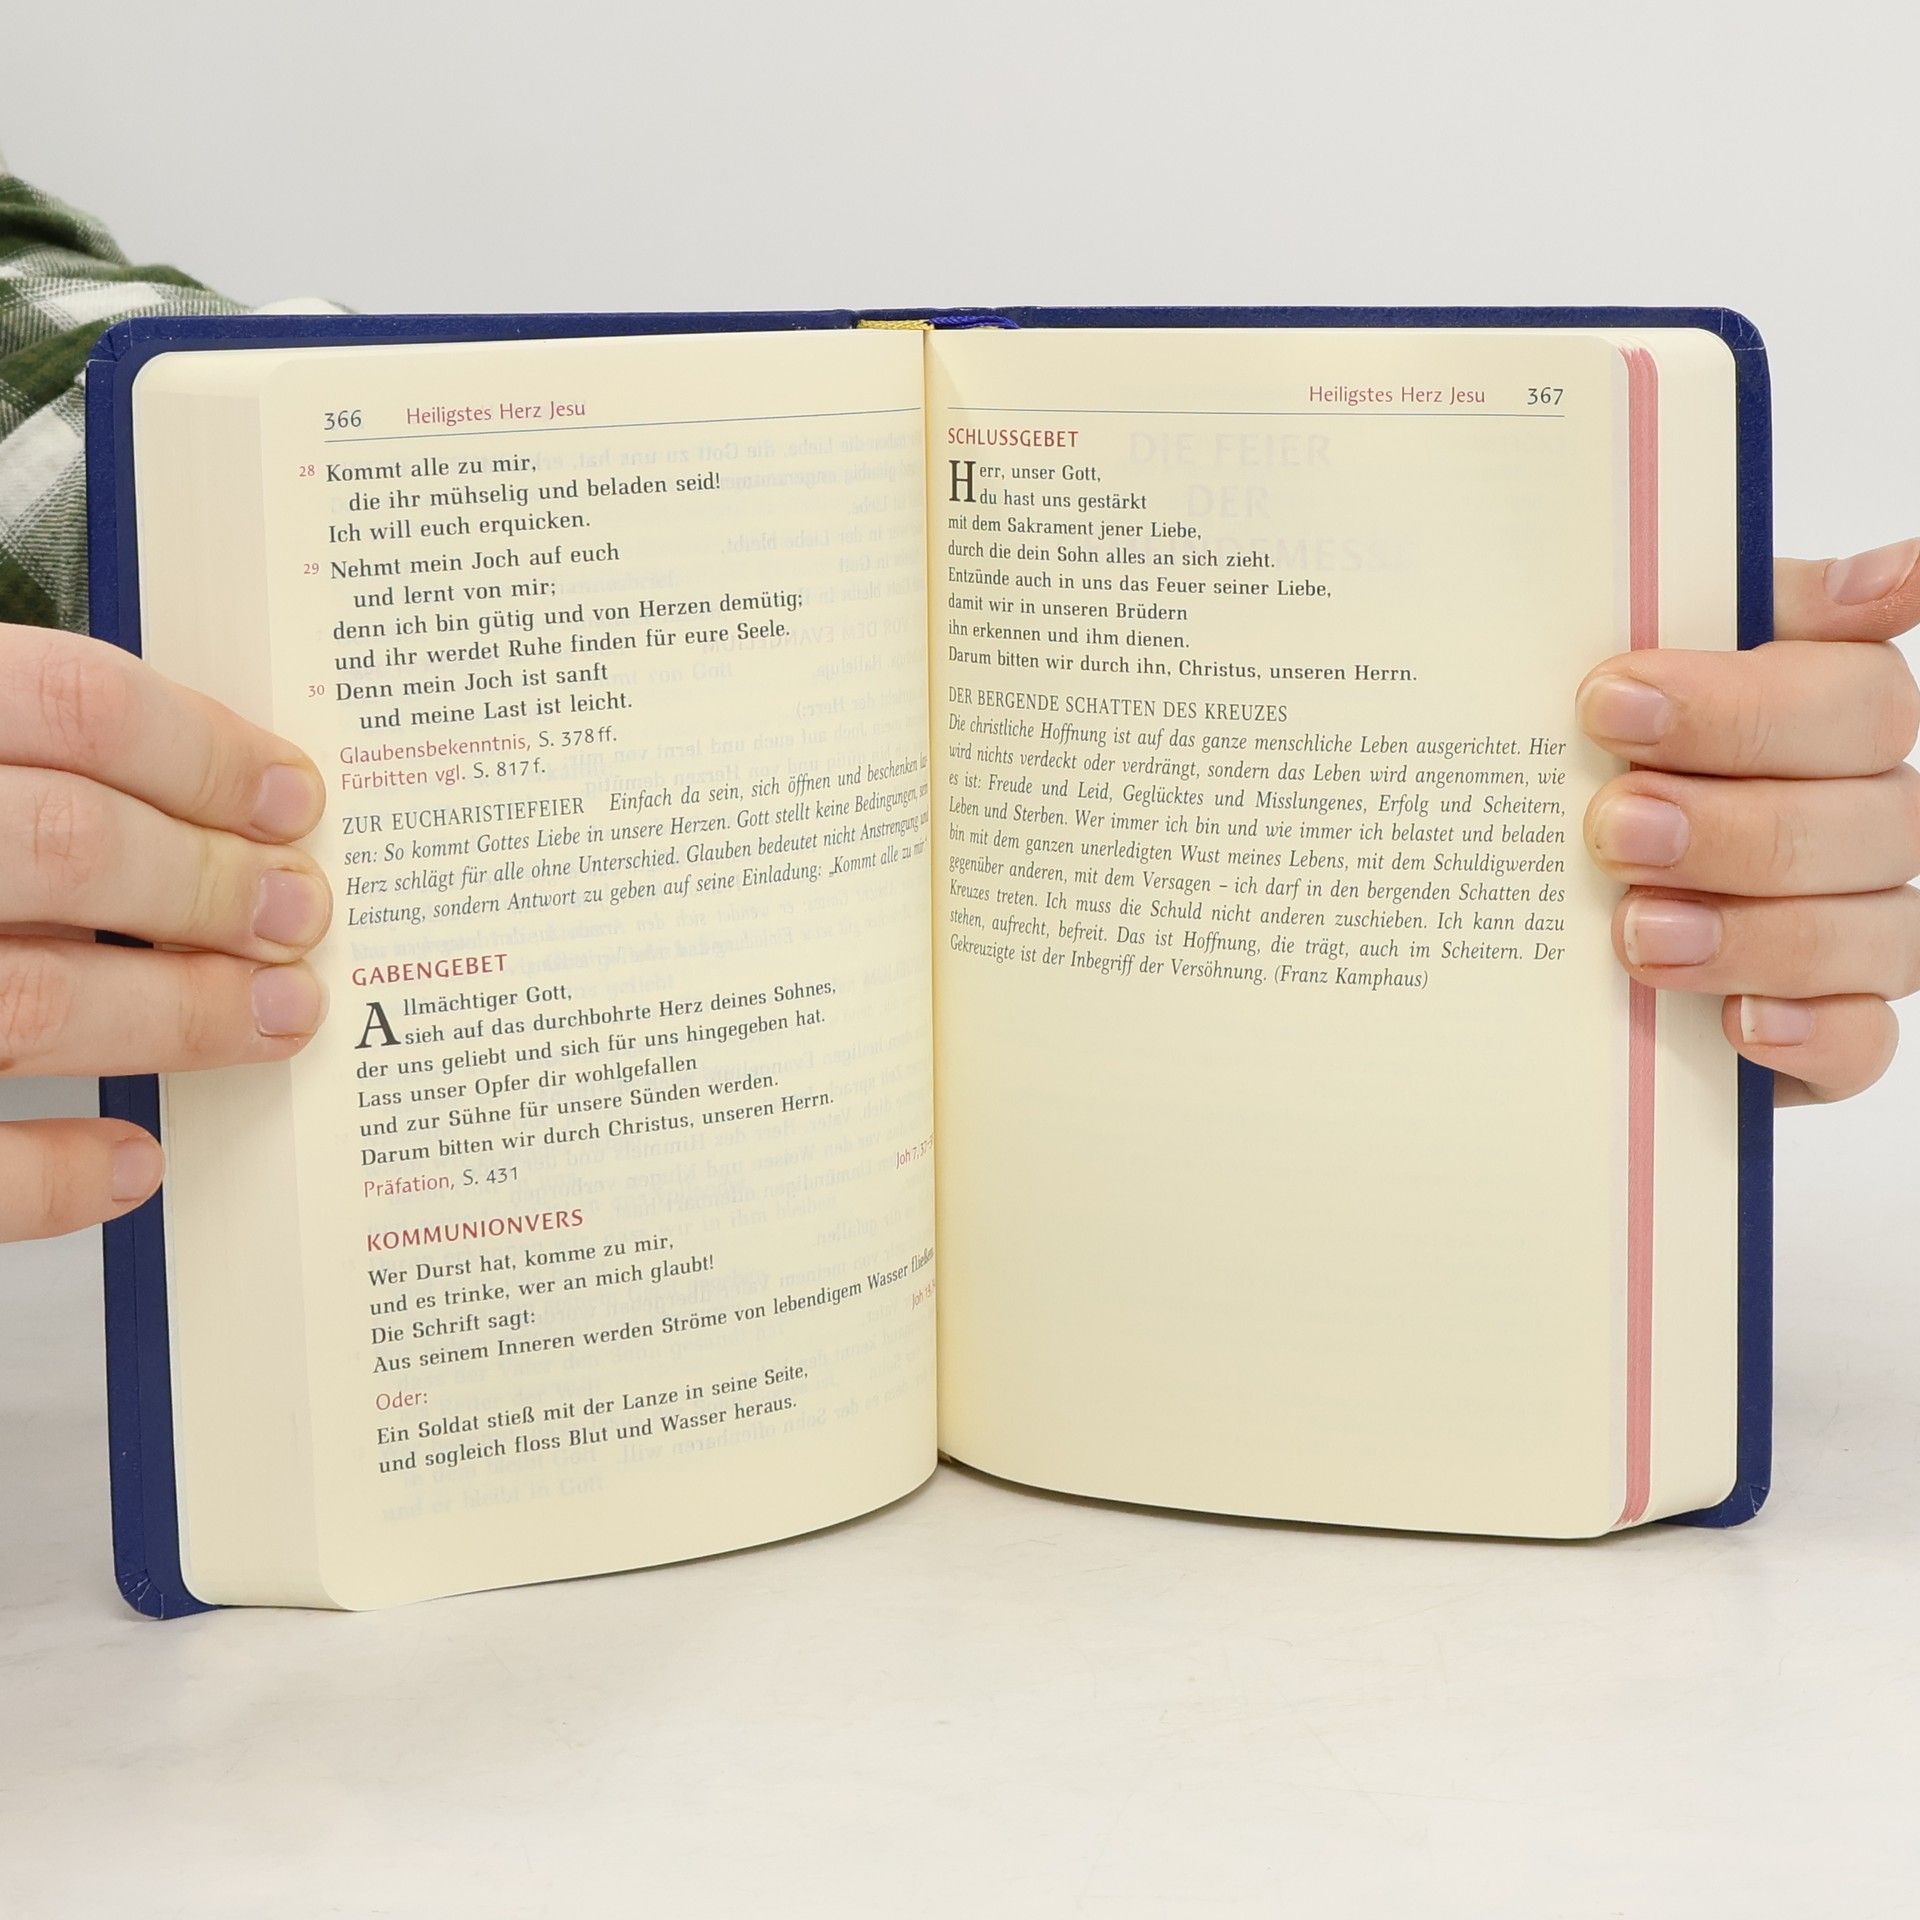 366 Heiligstes Herz Jesu
28 Kommt alle zu mir,
die ihr mühselig und beladen seid!
Ich will euch erquicken.
29 Nehmt mein Joch auf euch
und lernt von mir;
denn ich bin gütig und von Herzen demütig;
und ihr werdet Ruhe finden für eure Seele.
30 Denn mein Joch ist sanft
und meine Last ist leicht.
Glaubensbekenntnis, S. 378 ff.
Fürbitten vgl. S. 817 f.
ZUR EUCHARISTIEFEIER Einfach da sein, sich öffnen und beschenken las-
sen: So kommt Gottes Liebe in unsere Herzen. Gott stellt keine Bedingungen, sein
Herz schlägt für alle ohne Unterschied. Glauben bedeutet nicht Anstrengung und
Leistung, sondern Antwort zu geben auf seine Einladung: „Kommt alle zu mir“
GABENGEBET
Allmächtiger Gott,
sieh auf das durchbohrte Herz deines Sohnes,
der uns geliebt und sich für uns hingegeben hat.
Lass unser Opfer dir wohlgefallen
und zur Sühne für unsere Sünden werden.
Darum bitten wir durch Christus, unseren Herrn.
Präfation, S. 431
KOMMUNIONVERS
Joh 7, 37-3
Wer Durst hat, komme zu mir,
und es trinke, wer an mich glaubt!
Die Schrift sagt:
Aus seinem Inneren werden Ströme von lebendigem Wasser fließen.
Oder:
Joh 19,
Ein Soldat stieß mit der Lanze in seine Seite,
und sogleich floss Blut und Wasser heraus.
Heiligstes Herz Jesu 367
SCHLUSSGEBET
Herr, unser Gott,
du hast uns gestärkt
mit dem Sakrament jener Liebe,
durch die dein Sohn alles an sich zieht.
Entzünde auch in uns das Feuer seiner Liebe,
damit wir in unseren Brüdern
ihn erkennen und ihm dienen.
Darum bitten wir durch ihn, Christus, unseren Herrn.
DER BERGENDE SCHATTEN DES KREUZES
Die christliche Hoffnung ist auf das ganze menschliche Leben ausgerichtet. Hier
wird nichts verdeckt oder verdrängt, sondern das Leben wird angenommen, wie
es ist: Freude und Leid, Geglücktes und Misslungenes, Erfolg und Scheitern,
Leben und Sterben. Wer immer ich bin und wie immer ich belastet und beladen
bin mit dem ganzen unerledigten Wust meines Lebens, mit dem Schuldigwerden
gegenüber anderen, mit dem Versagen – ich darf in den bergenden Schatten des
Kreuzes treten. Ich muss die Schuld nicht anderen zuschieben. Ich kann dazu
stehen, aufrecht, befreit. Das ist Hoffnung, die trägt, auch im Scheitern. Der
Gekreuzigte ist der Inbegriff der Versöhnung. (Franz Kamphaus)